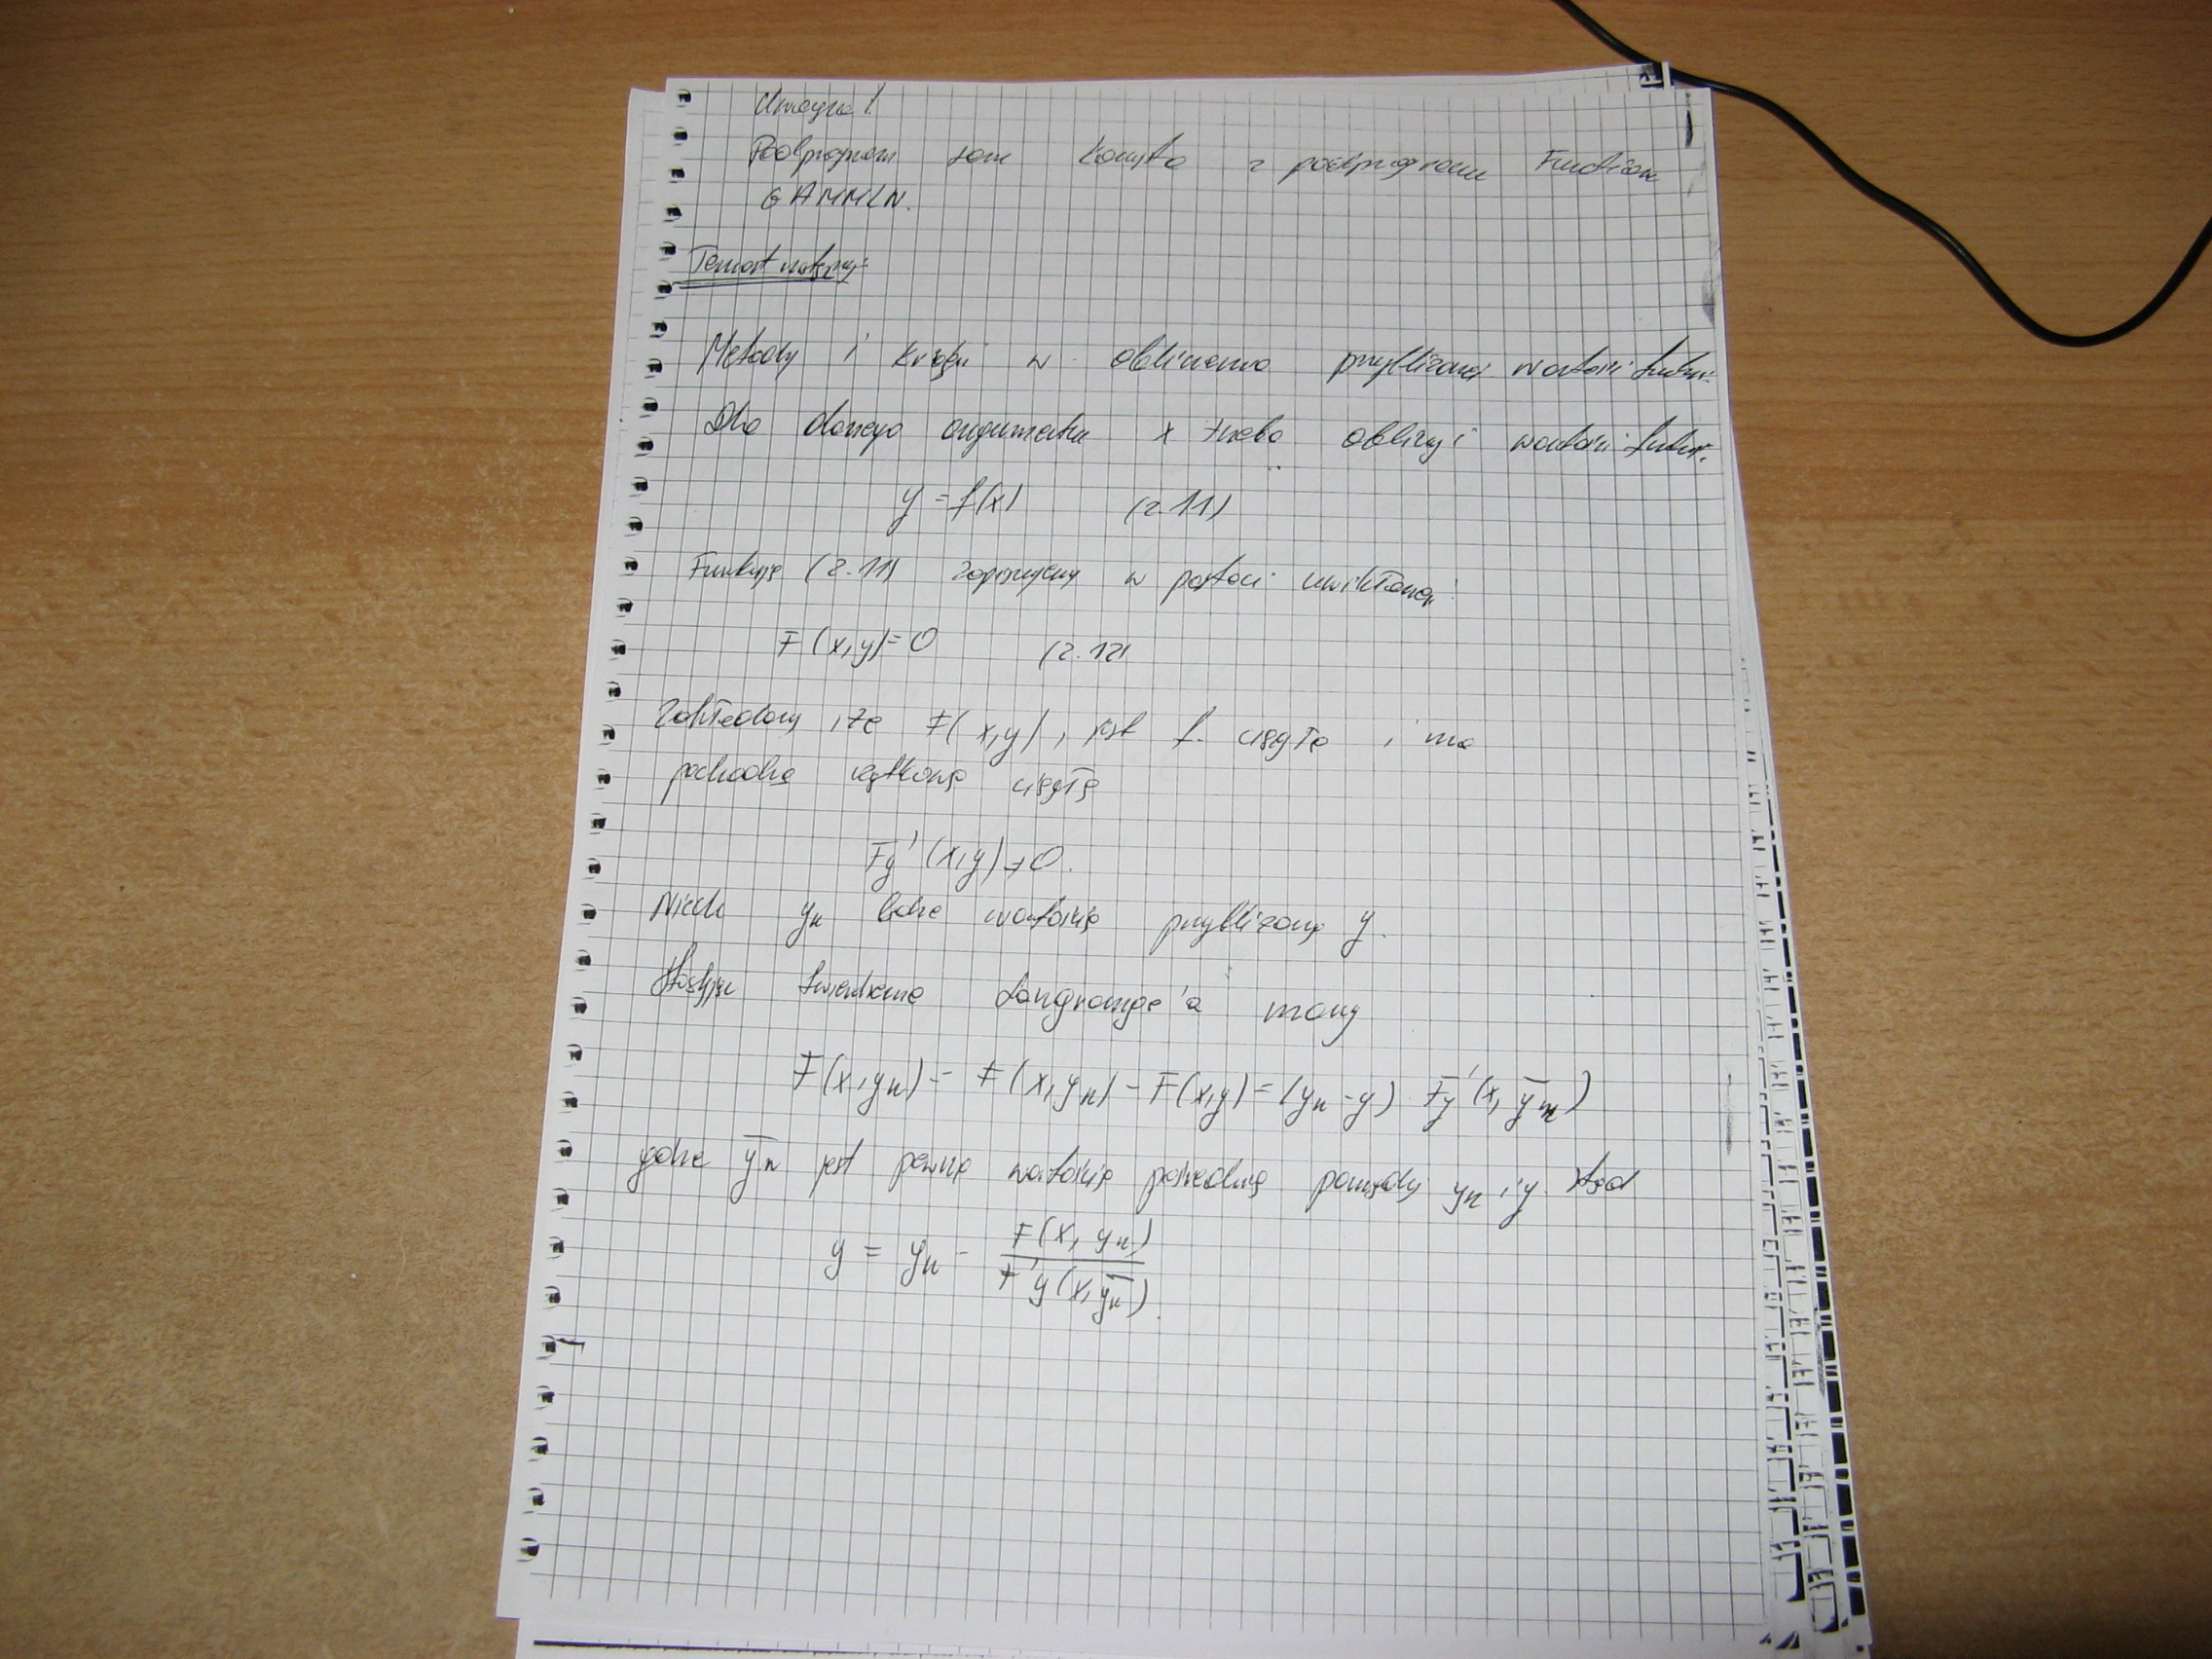 Uwaga!
Podprogram sam korzysta z podprogramu Function
GAMMLN.
Temat
Metody i w obliczeniu przybliżonej wartości funkcji.
Dla danego argumentu x trzeba obliczyć wartość funkcji.
y = f(x) (2.11)
Funkcję (2.11) zapisujemy w postaci uwikłanej:
F(x,y)=0 (2.12)
Zakładamy, że F(x,y), jest f. ciągłą i ma
pochodną cząstkową ciągłą
Fy'(x,y)≠0.
Niech yn będzie wartością przybliżoną y.
Stosując twierdzenie Langrange'a mamy
F(x,yn) = F(x,yn) - F(x,y) = (yn - y) Fy'(x, ȳn)
gdzie ȳn jest pewną wartością pośrednią pomiędzy yn i y. Stąd
y = yn - F(x, yn) / F'y(x, ȳn).